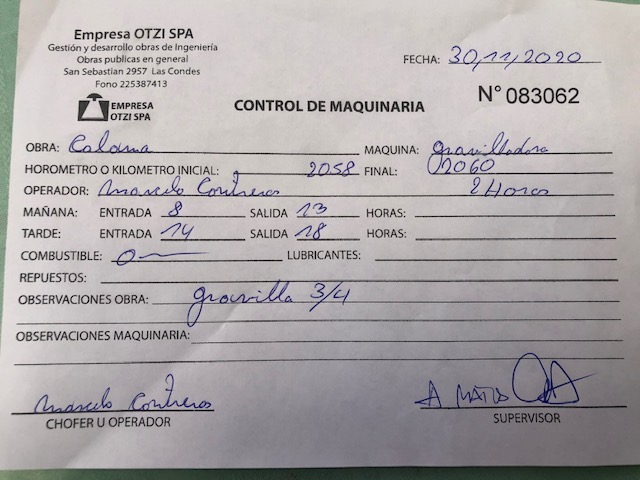 Empresa OTZI SPA
Gestión y desarrollo obras de Ingeniería
Obras publicas en general
San Sebastian 2957 Las Condes
Fono 225387413
EMPRESA
OTZI SPA
FECHA: 30/11/2020
CONTROL DE MAQUINARIA
N° 083062
OBRA: Caldera MAQUINA: gravilladora
HOROMETRO O KILOMETRO INICIAL: 2058 FINAL: 2060
OPERADOR: Marcelo Contreras 2 Horas
MAÑANA: ENTRADA 8 SALIDA 13 HORAS:
TARDE: ENTRADA 14 SALIDA 18 HORAS:
COMBUSTIBLE: 0 LUBRICANTES:
REPUESTOS:
OBSERVACIONES OBRA: gravilla 3/4
OBSERVACIONES MAQUINARIA:
Marcelo Contreras
CHOFER U OPERADOR
SUPERVISOR